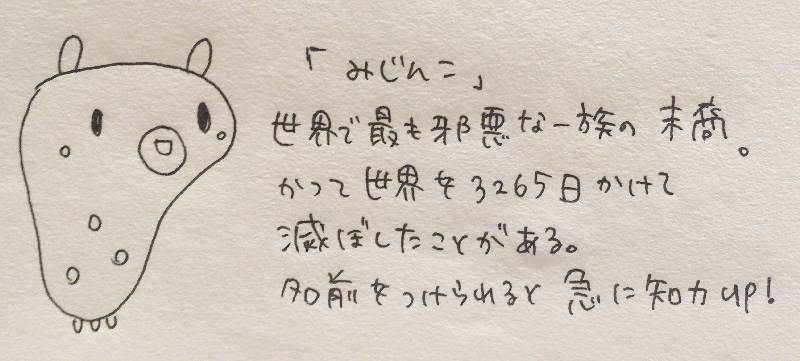 「みじんこ」
世界で最も邪悪な一族の末裔。
かつて世界を3265日かけて
滅ぼしたことがある。
名前をつけられると急に知力up!